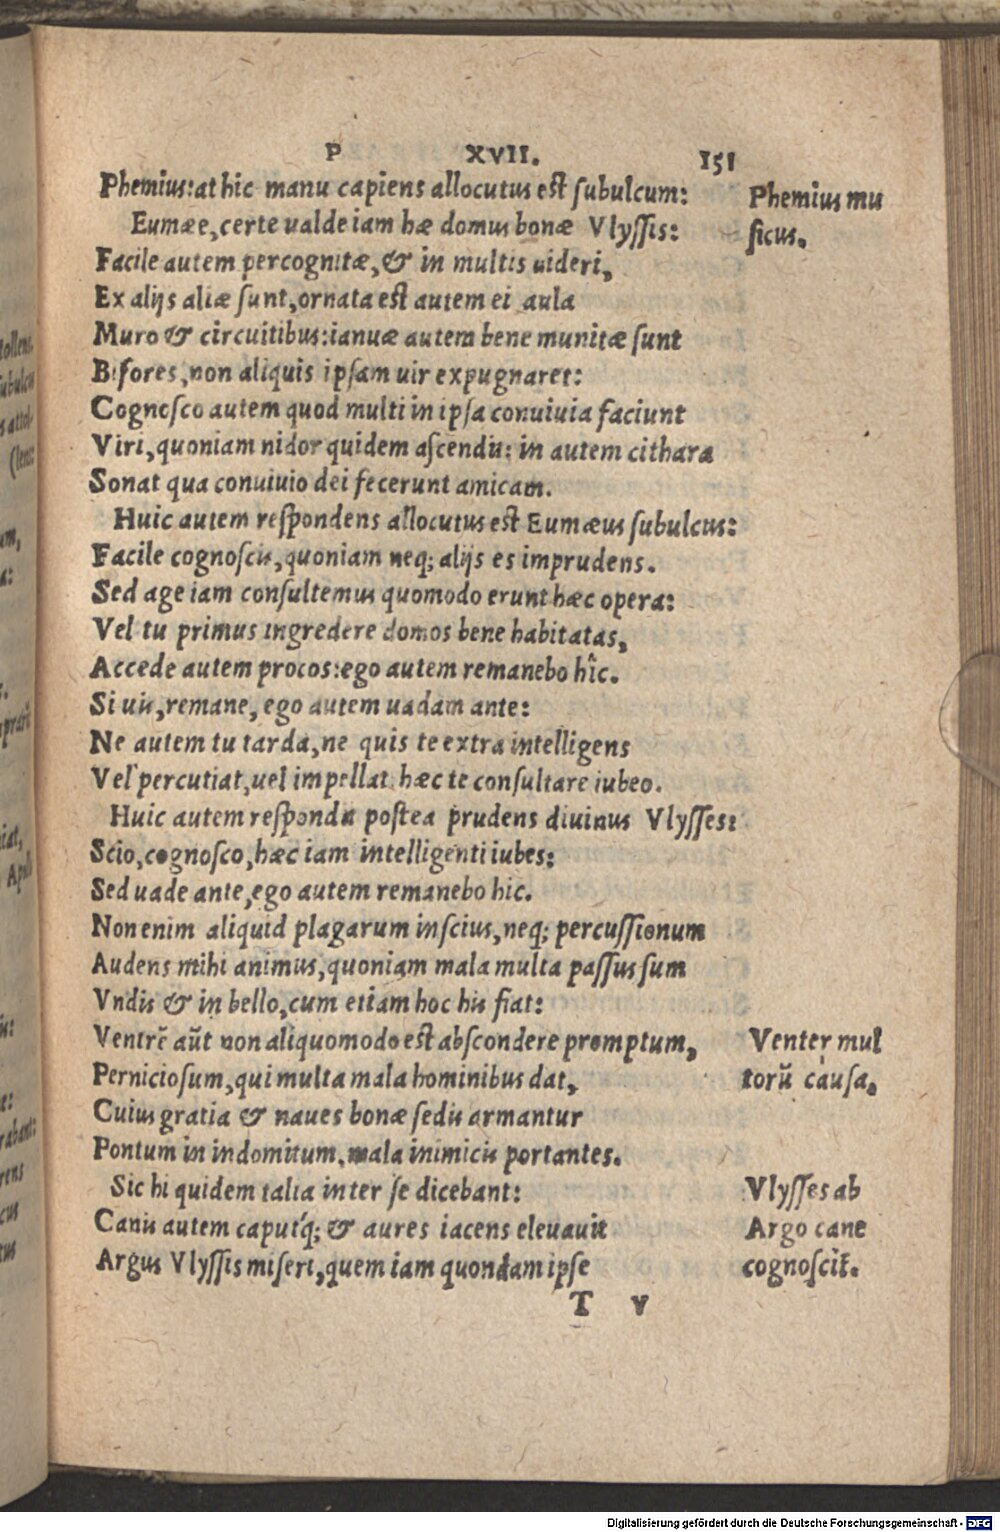 P XVII. 151
Phemius: at hic manu capiens allocutus est subulcum:
Phemius mu
sicus.
Eumæe, certe ualde iam hæ domus bonæ Vlyssis:
Facile autem percognitæ, & in multis uideri,
Ex alijs aliæ sunt, ornata est autem ei aula
Muro & circuitibus: ianuæ autem bene munitæ sunt
Bifores, non aliquis ipsam uir expugnaret:
Cognosco autem quod multi in ipsa conuiuia faciunt
Viri, quoniam nidor quidem ascendit: in autem cithara
Sonat qua conuiuio dei fecerunt amicam.
Huic autem respondens allocutus est Eumæus subulcus:
Facile cognoscis, quoniam neq; alijs es imprudens.
Sed age iam consultemus quomodo erunt hæc opera:
Vel tu primus ingredere domos bene habitatas,
Accede autem procos: ego autem remanebo hîc.
Si uis, remane, ego autem uadam ante:
Ne autem tu tarda, ne quis te extra intelligens
Vel percutiat, uel impellat: hæc te consultare iubeo.
Huic autem respondit postea prudens diuinus Vlysses:
Scio, cognosco, hæc iam intelligenti iubes:
Sed uade ante, ego autem remanebo hic.
Non enim aliquid plagarum inscius, neq; percussionum
Audens mihi animus, quoniam mala multa passus sum
Vndis & in bello, cum etiam hoc his fiat:
Ventrē aūt non aliquomodo est abscondere promptum,
Venter mul
torū causa.
Perniciosum, qui multa mala hominibus dat,
Cuius gratia & naues bonæ sedis armantur
Pontum in indomitum, mala inimicis portantes.
Sic hi quidem talia inter se dicebant:
Vlysses ab
Argo cane
cognoscit̃.
Canis autem caput'q; & aures iacens eleuauit
Argus Vlyssis miseri, quem iam quondam ipse
T v
Digitalisierung gefördert durch die Deutsche Forschungsgemeinschaft - DFG